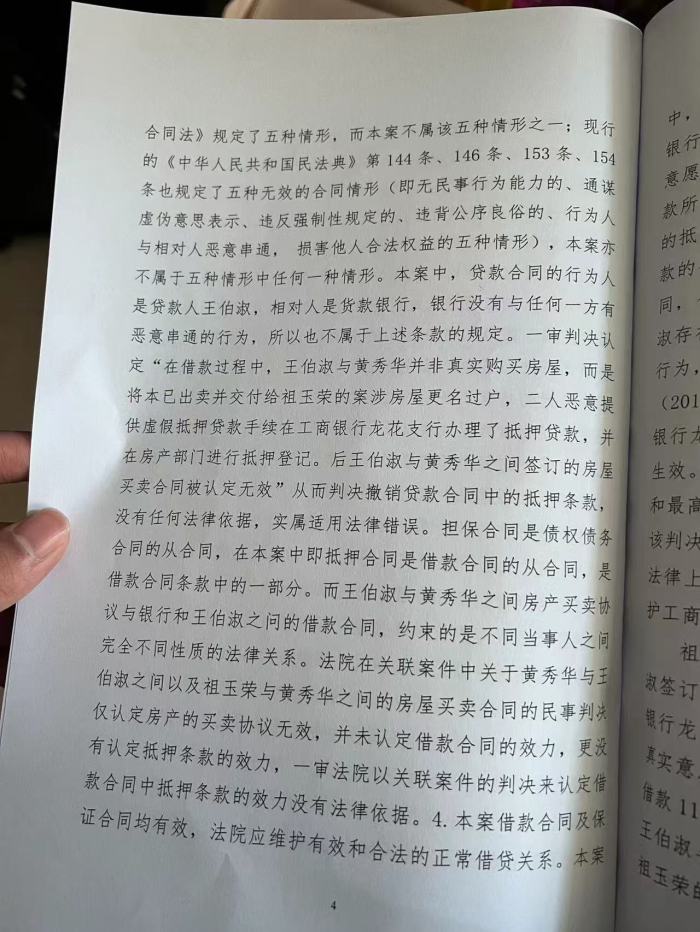 合同法》规定了五种情形，而本案不属该五种情形之一；现行
的《中华人民共和国民法典》第 144 条、146 条、153 条、154
条也规定了五种无效的合同情形（即无民事行为能力的、通谋
虚伪意思表示、违反强制性规定的、违背公序良俗的、行为人
与相对人恶意串通， 损害他人合法权益的五种情形），本案亦
不属于五种情形中任何一种情形。本案中，贷款合同的行为人
是贷款人王伯淑，相对人是货款银行，银行没有与任何一方有
恶意串通的行为，所以也不属于上述条款的规定。一审判决认
定“在借款过程中，王伯淑与黄秀华并非真实购买房屋，而是
将本已出卖并交付给祖玉荣的案涉房屋更名过户，二人恶意提
供虚假抵押贷款手续在工商银行龙花支行办理了抵押贷款，并
在房产部门进行抵押登记。后王伯淑与黄秀华之间签订的房屋
买卖合同被认定无效”从而判决撤销贷款合同中的抵押条款，
没有任何法律依据，实属适用法律错误。担保合同是债权债务
合同的从合同，在本案中即抵押合同是借款合同的从合同，是
借款合同条款中的一部分。而王伯淑与黄秀华之间房产买卖协
议与银行和王伯淑之间的借款合同，约束的是不同当事人之间
完全不同性质的法律关系。法院在关联案件中关于黄秀华与王
伯淑之间以及祖玉荣与黄秀华之间的房屋买卖合同的民事判决
仅认定房产的买卖协议无效，并未认定借款合同的效力，更没
有认定抵押条款的效力，一审法院以关联案件的判决来认定借
款合同中抵押条款的效力没有法律依据。4.本案借款合同及保
证合同均有效，法院应维护有效和合法的正常借贷关系。本案
4
中，
银行
意愿
款所
的抵
款的
同，
淑存
行为，
（201
银行龙
生效。
和最高
该判决
法律上
护工商
祖
淑签订
银行龙
真实意
借款 11
王伯淑
祖玉荣的